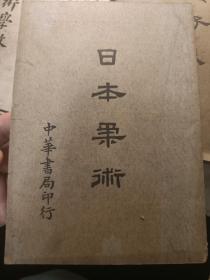 日本柔術
中華書局印行